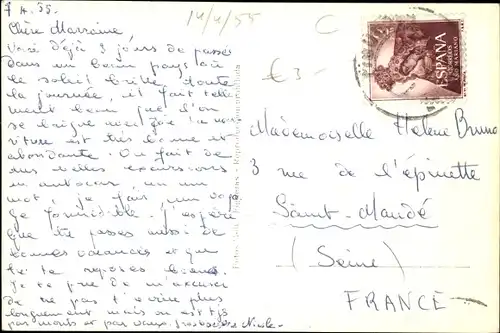 7 4.55.
14/4/55
C
€3-
Chère Marraine
Voici déjà 3 jours de passés
dans un beau pays où
le soleil brille toute
la journée, il fait telle
ment beau que l'on
se baigne
est très bonne et
abondante. On fait de
très belles excursions
en autocar, en un
mot, je fais un voya
ge formidable. J'espère
que tu passes aussi de
bonnes vacances et que
tu te reposes bien.
Je te prie de m'excuser
de ne pas t'écrire plus
longuement mais on est
par monts et par vaux. Nicole
ESPAÑA
CORREOS
AÑO MARIANO
Mademoiselle Helene Bruno
3 rue de l'épinette
Saint-Maudé
(Seine)
FRANCE